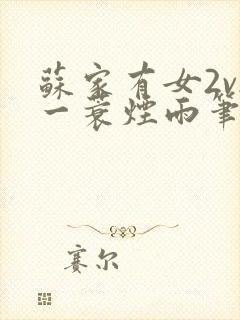 蘇家有女2v
一蓑煙雨筆
賽尔